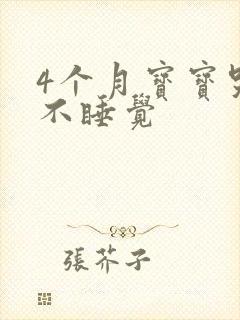 4个月寶寶哭
不睡覺
張芥子